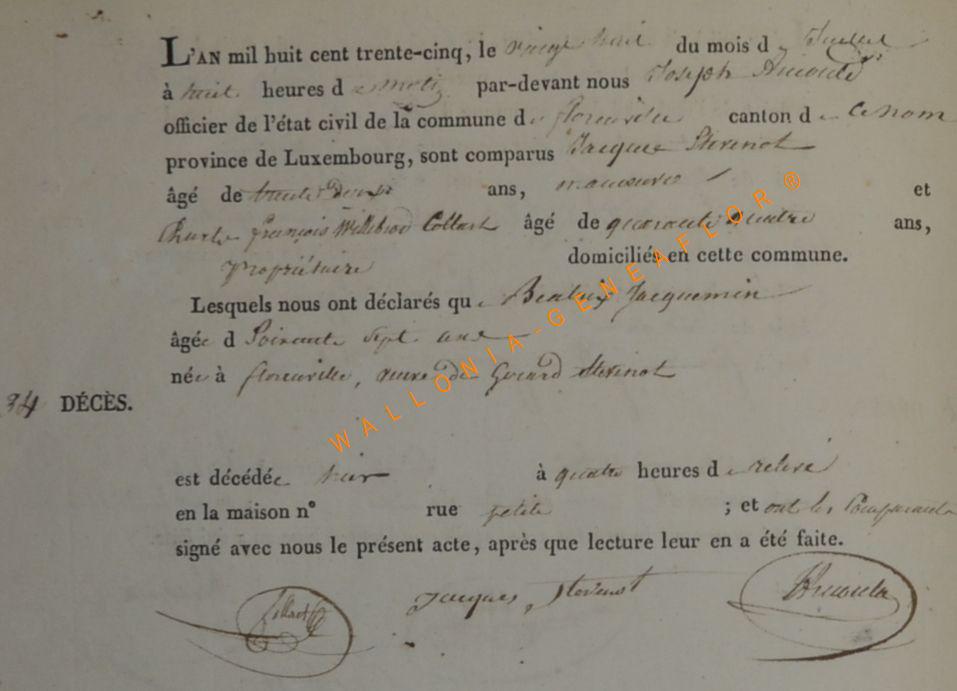 L'AN mil huit cent trente-cinq, le vingt huit du mois de Juillet
à huit heures du matin par-devant nous Joseph
officier de l'état civil de la commune de florenville canton de ce nom
province de Luxembourg, sont comparus Jacques Stevenot
âgé de trente deux ans, manoeuvre et
Charles françois Willebrod Collart âgé de quarante quatre ans,
propriétaire domiciliés en cette commune.
Lesquels nous ont déclarés que Beatrix Jacquemin
âgée d Soixante Sept ans
née à florenville, veuve de Gerard Stevenot
34 DÉCÈS.
est décédée hier à quatre heures de relevé
en la maison n° rue petite ; et ont les Comparants
signé avec nous le présent acte, après que lecture leur en a été faite.
Collart Jacques Stevenot
WALLONIA-GENEAFLOR®